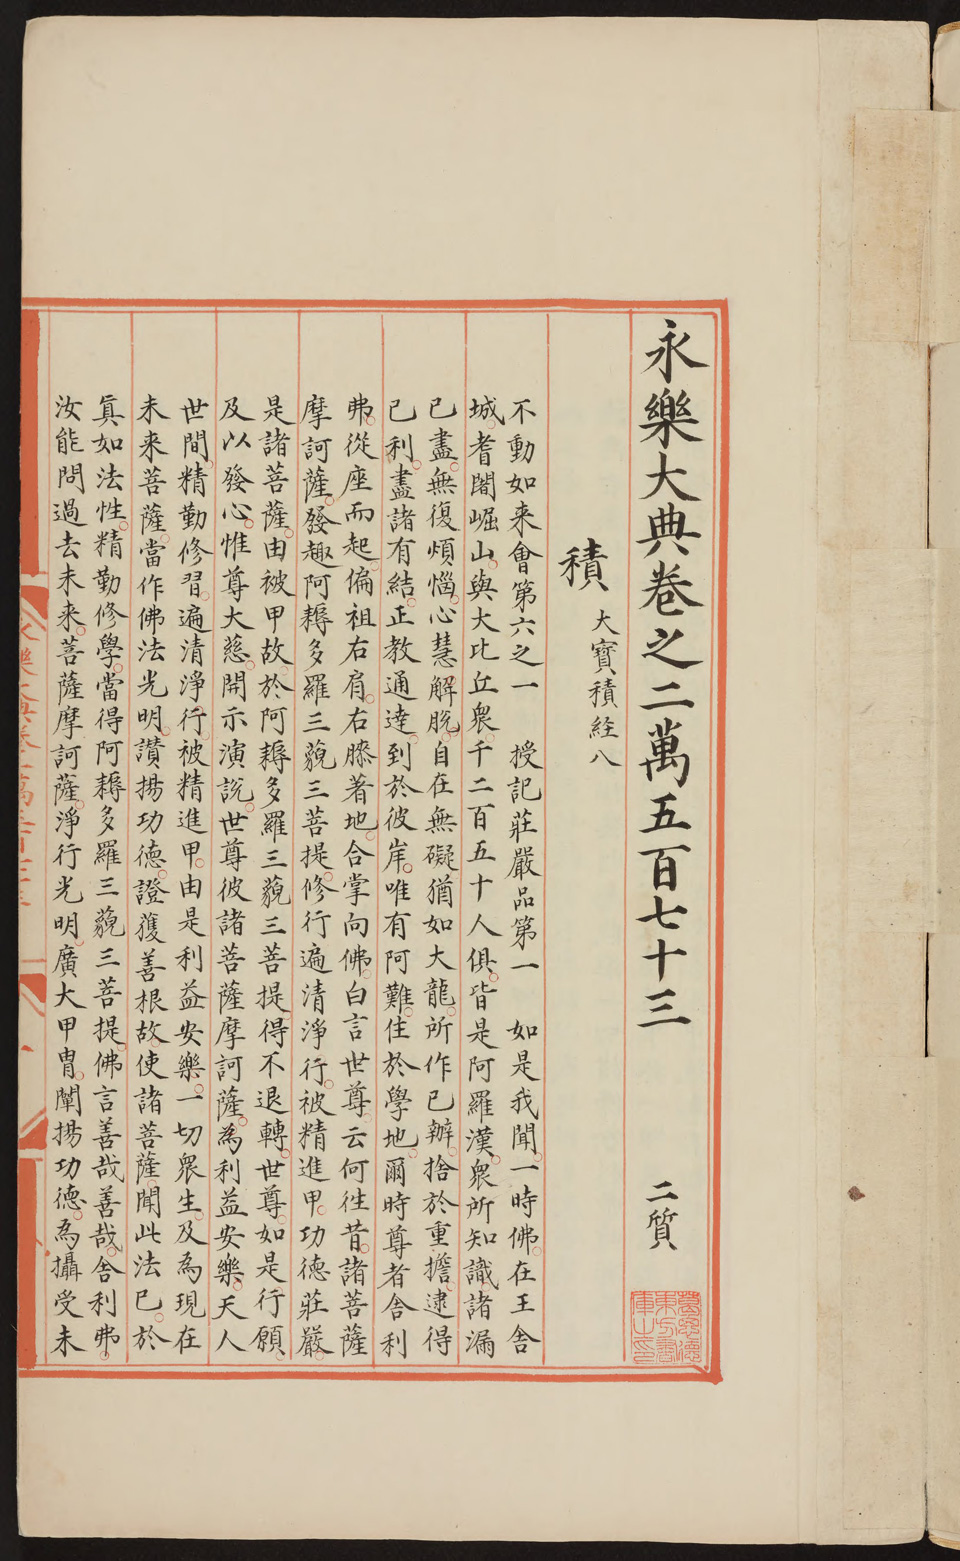 永樂大典卷之二萬五百七十三 二質
積 大寶積経八
不動如来會第六之一 授記莊嚴品第一 如是我聞一時佛在王舎
城耆闍崛山與大比丘衆千二百五十人俱皆是阿羅漢衆所知識諸漏
已盡無復煩惱心慧解脫自在無礙猶如大龍所作已辦捨於重擔逮得
已利盡諸有結正教通達到於彼岸唯有阿難住於學地爾時尊者舎利
弗從座而起偏袒右肩右膝著地合掌向佛白言世尊云何徃昔諸菩薩
摩訶薩發趣阿耨多羅三藐三菩提修行遍清淨行被精進甲功德莊嚴
是諸菩薩由被甲故於阿耨多羅三藐三菩提得不退轉世尊如是行願
及以發心惟尊大慈開示演説世尊彼諸菩薩摩訶薩為利益安樂天人
世間精勤修習遍清淨行被精進甲由是利益安樂一切衆生及為現在
未来菩薩當作佛法光明讃揚功德證獲善根故使諸菩薩聞此法已於
真如法性精勤修學當得阿耨多羅三藐三菩提佛言善哉善哉舎利弗
汝能問過去未来菩薩摩訶薩淨行光明廣大甲冑闡揚功德為攝受未